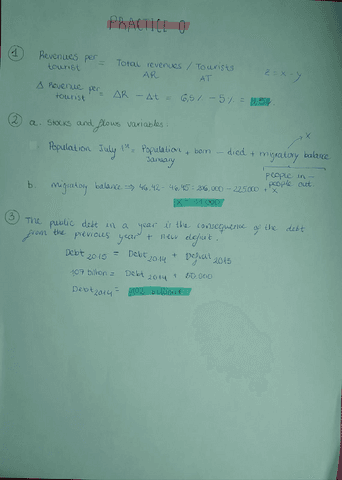 PRACTICE 0
① Revenues per tourist = Total revenues / Tourists
AR AT z = x - y
Δ Revenue per tourist = ΔR - Δt = 6,5% - 5% = 1,5%
② a. Stocks and flows variables:
x
Population July 1st = Population January + born - died + migratory balance
people in - people out
b. migratory balance ⇒ 46,42 = 46,45 + 206.000 - 225.000 + x
③ The public debt in a year is the consequence of the debt
from the previous year + new deficit.
Debt 2015 = Debt 2014 + Deficit 2015
Debt 2014 + 50.000
Debt 2014 =